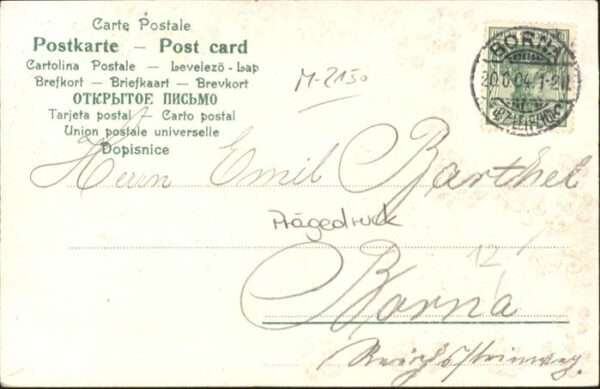 Carte Postale
Postkarte – Post card
Cartolina Postale – Levelező-Lap
Brefkort – Briefkaart – Brevkort
ОТКРЫТОЕ ПИСЬМО
Tarjeta postal – Carto postal
Union postale universelle
Dopisnice
M-2150
BORNA
04. 1-2
Herrn Emil Barthel
Prägedruck
12
Borna